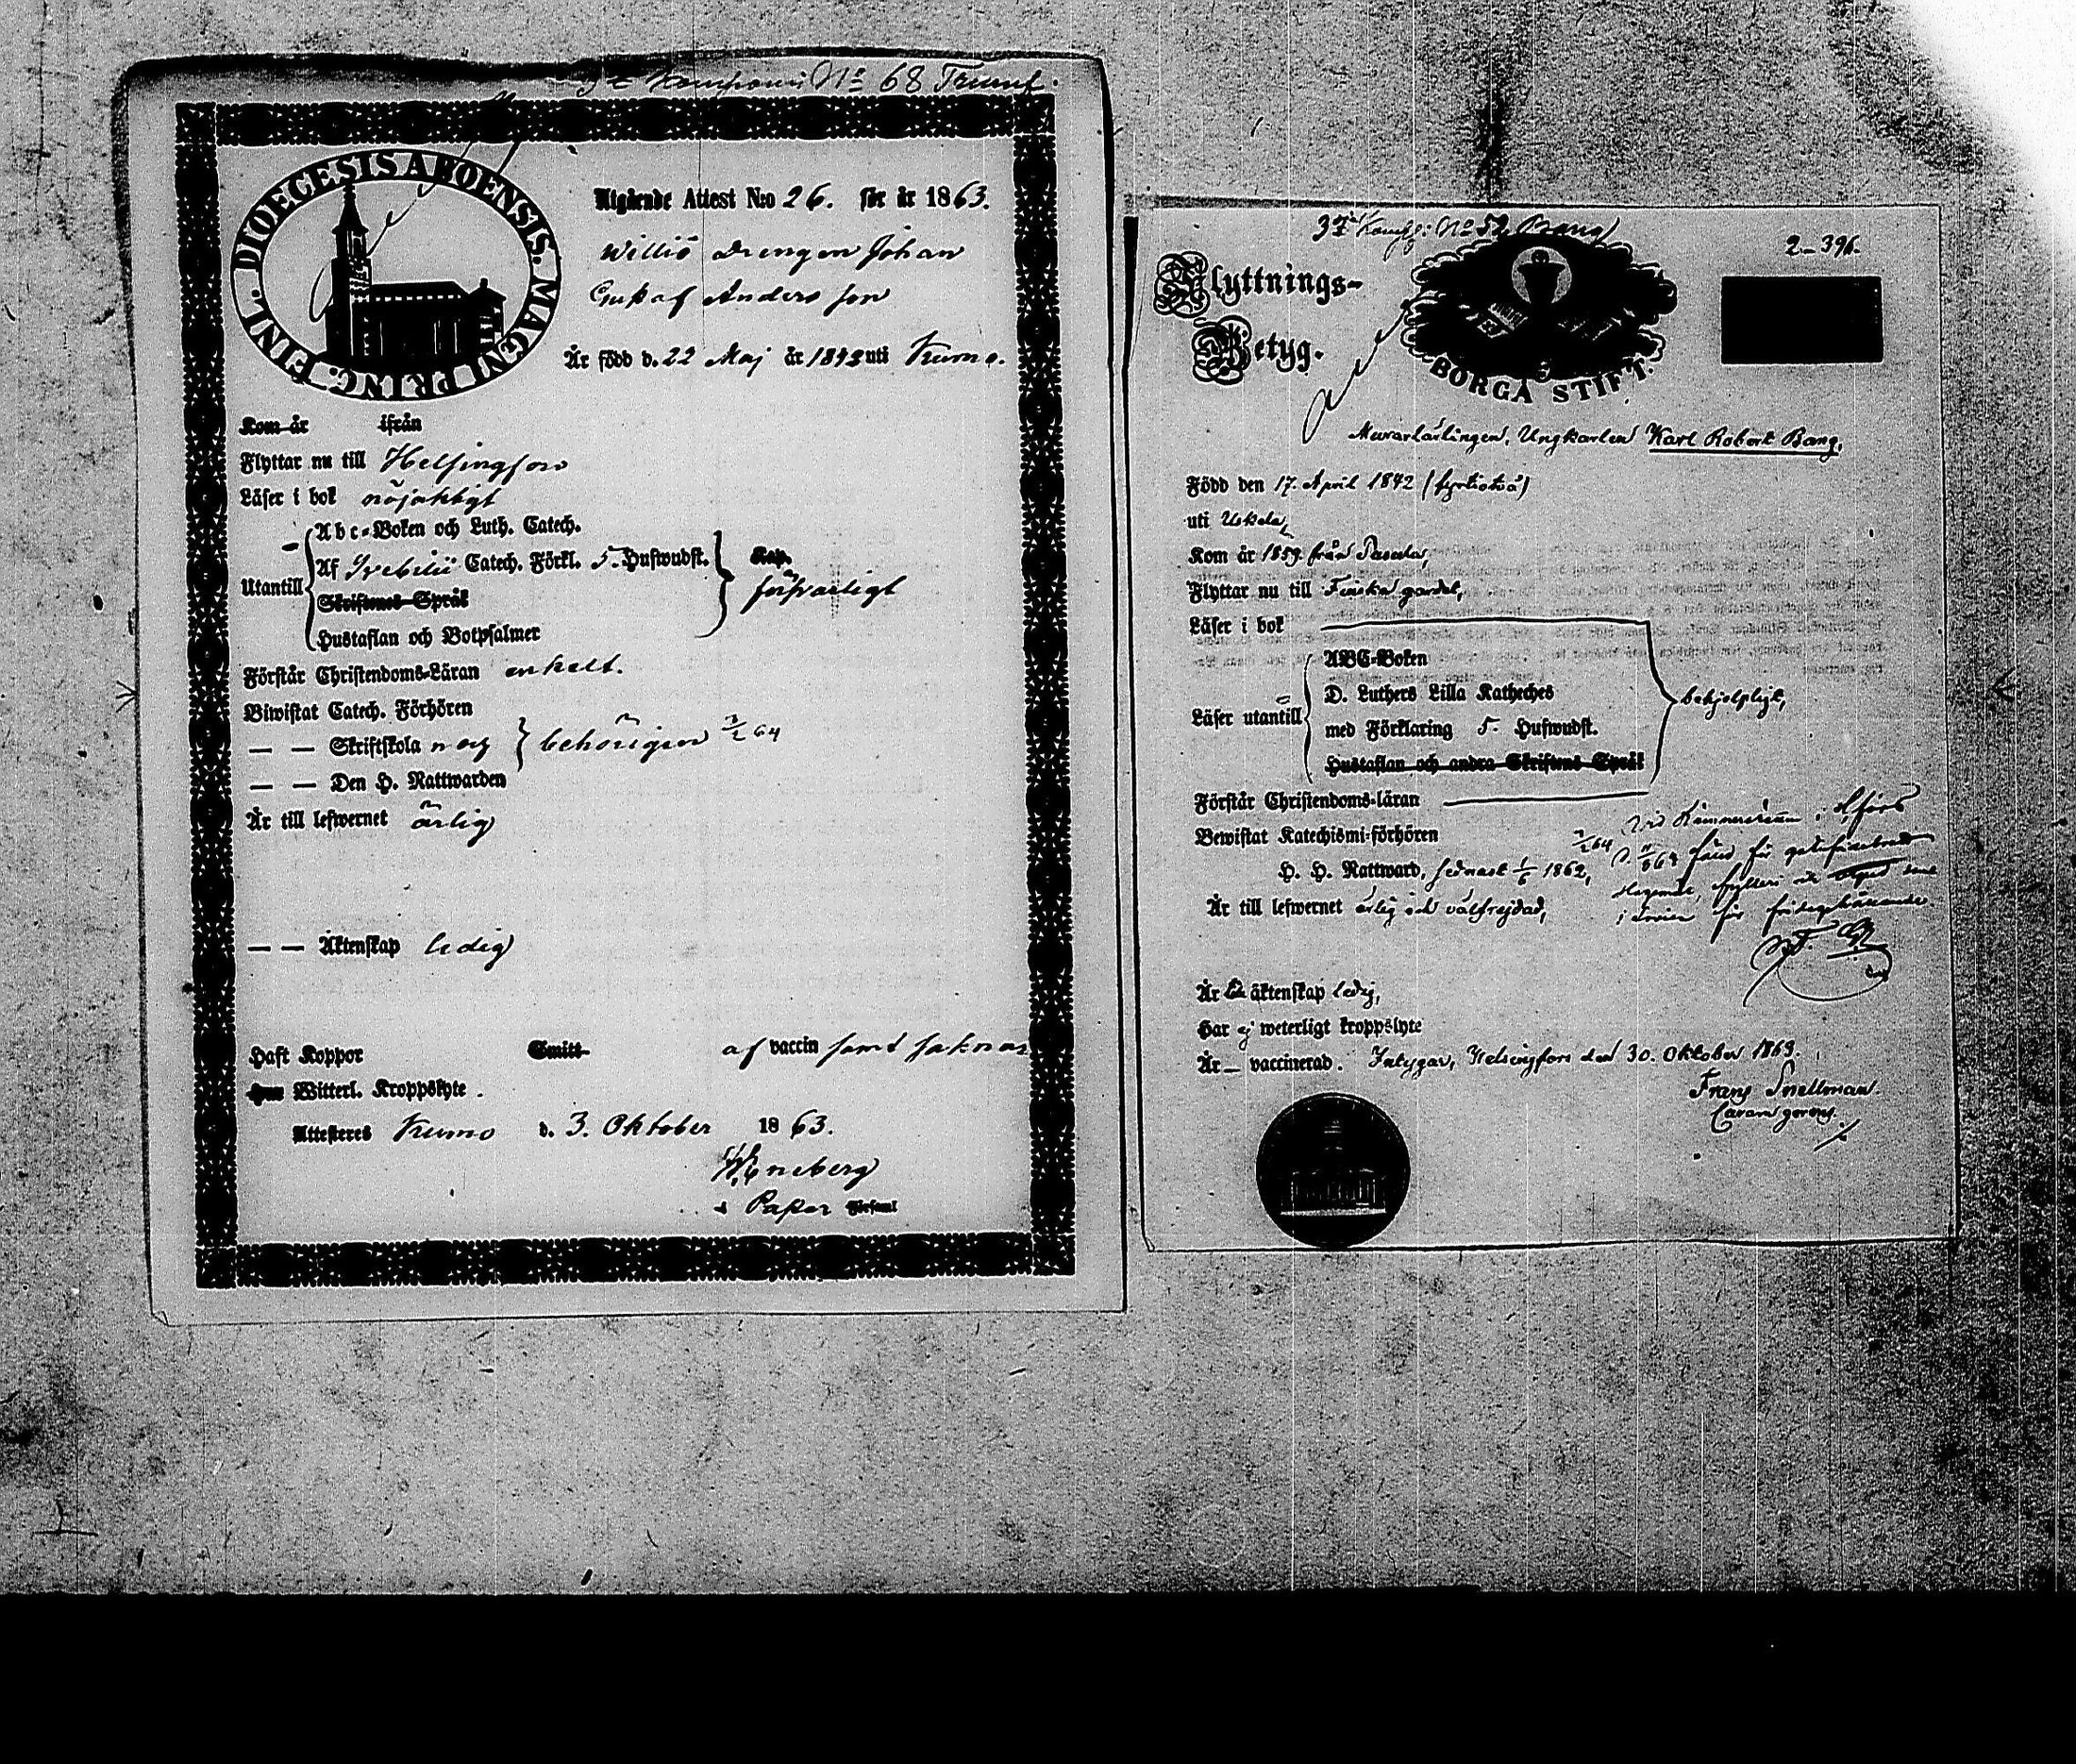 3e Kompani No 68 Trumf.
DIOECESIS ABOENSIS. MAGNI PRINC. FINL.
Utgående Attest N:o 26. för år 1863.
Willio drengen Johan
Gustaf Andersson
Är född d. 22 Maj år 1842 uti Kumo.
Kom år ifrån
Flyttar nu till Helsingfors
Läser i bok nöjaktigt
Abc-Boken och Luth. Catech.
Af Svebilii Catech. Förkl. 5. Hufwudst. Kap.
Utantill försvarligt
Skriftenes Språk
Hustaflan och Botpsalmer
Förstår Christendoms-Läran enkelt.
Biwistat Catech. Förhören
— — Skriftskola behörigen 7/2 64
— — Den H. Nattwarden
Är till lefwernet ärlig
— — Äktenskap ledig
Haft Koppor Smitt af vaccin samt saknar
Witterl. Kroppslyte.
Attesteres Kumo d. 3. Oktober 1863.
Weneberg
Pastor Församl
3e Komp: No 52
2-396.
Flyttnings-
Betyg.
BORGÅ STIFT.
Murarlärlingen, Ungkarlen Karl Robert Bang,
Född den 17. April 1842 (fyrtiotvå)
uti Uskela,
Kom år 1859. från
Flyttar nu till Finska gardet,
Läser i bok
ABC-Boken
D. Luthers Lilla Katheches
Läser utantill behjelpligt,
med Förklaring 5. Hufwudst.
Hustaflan och andra Skriftens Språk
Förstår Christendoms-läran
Bewistat Katechismi-förhören 7/2 64
H. H. Nattward, sednast 1/6 1862,
Är till lefwernet ärlig och välfrejdad,
Är till äktenskap ledig,
Har ej weterligt kroppslyte
Är — vaccinerad. Intygar, Helsingfors den 30. Oktober 1863.
Frans Snellman.